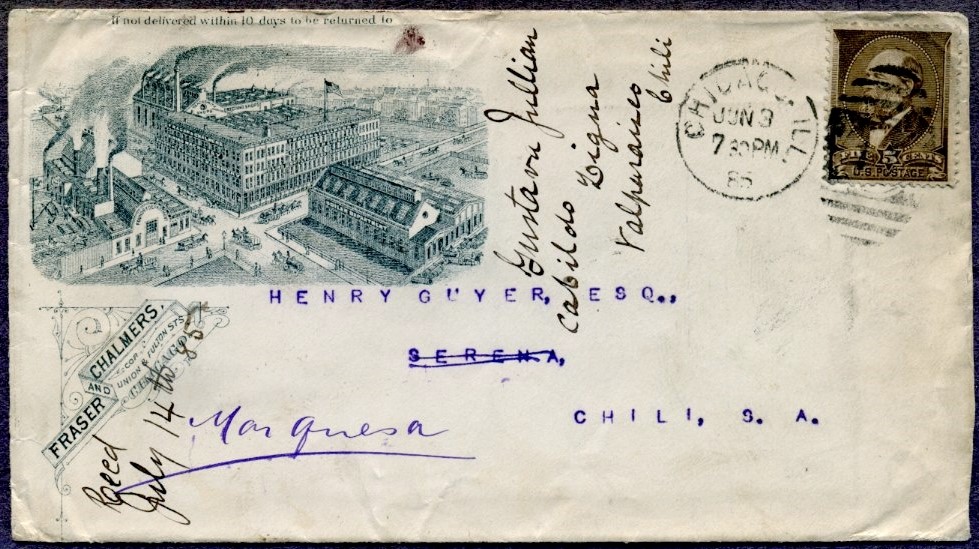 If not delivered within 10 days to be returned to
FRASER AND CHALMERS,
COR
UNION & FULTON STS
CHICAGO
Recd
July 14 th 85
Gustavo Jullian
Cabildo Ligua
Valparaiso
Chili
CHICAGO, ILL.
JUN 3
7 30 PM
85
FIVE 5 CENTS
U.S. POSTAGE
HENRY GUYER, ESQ.,
SERENA,
Marquesa
CHILI, S. A.